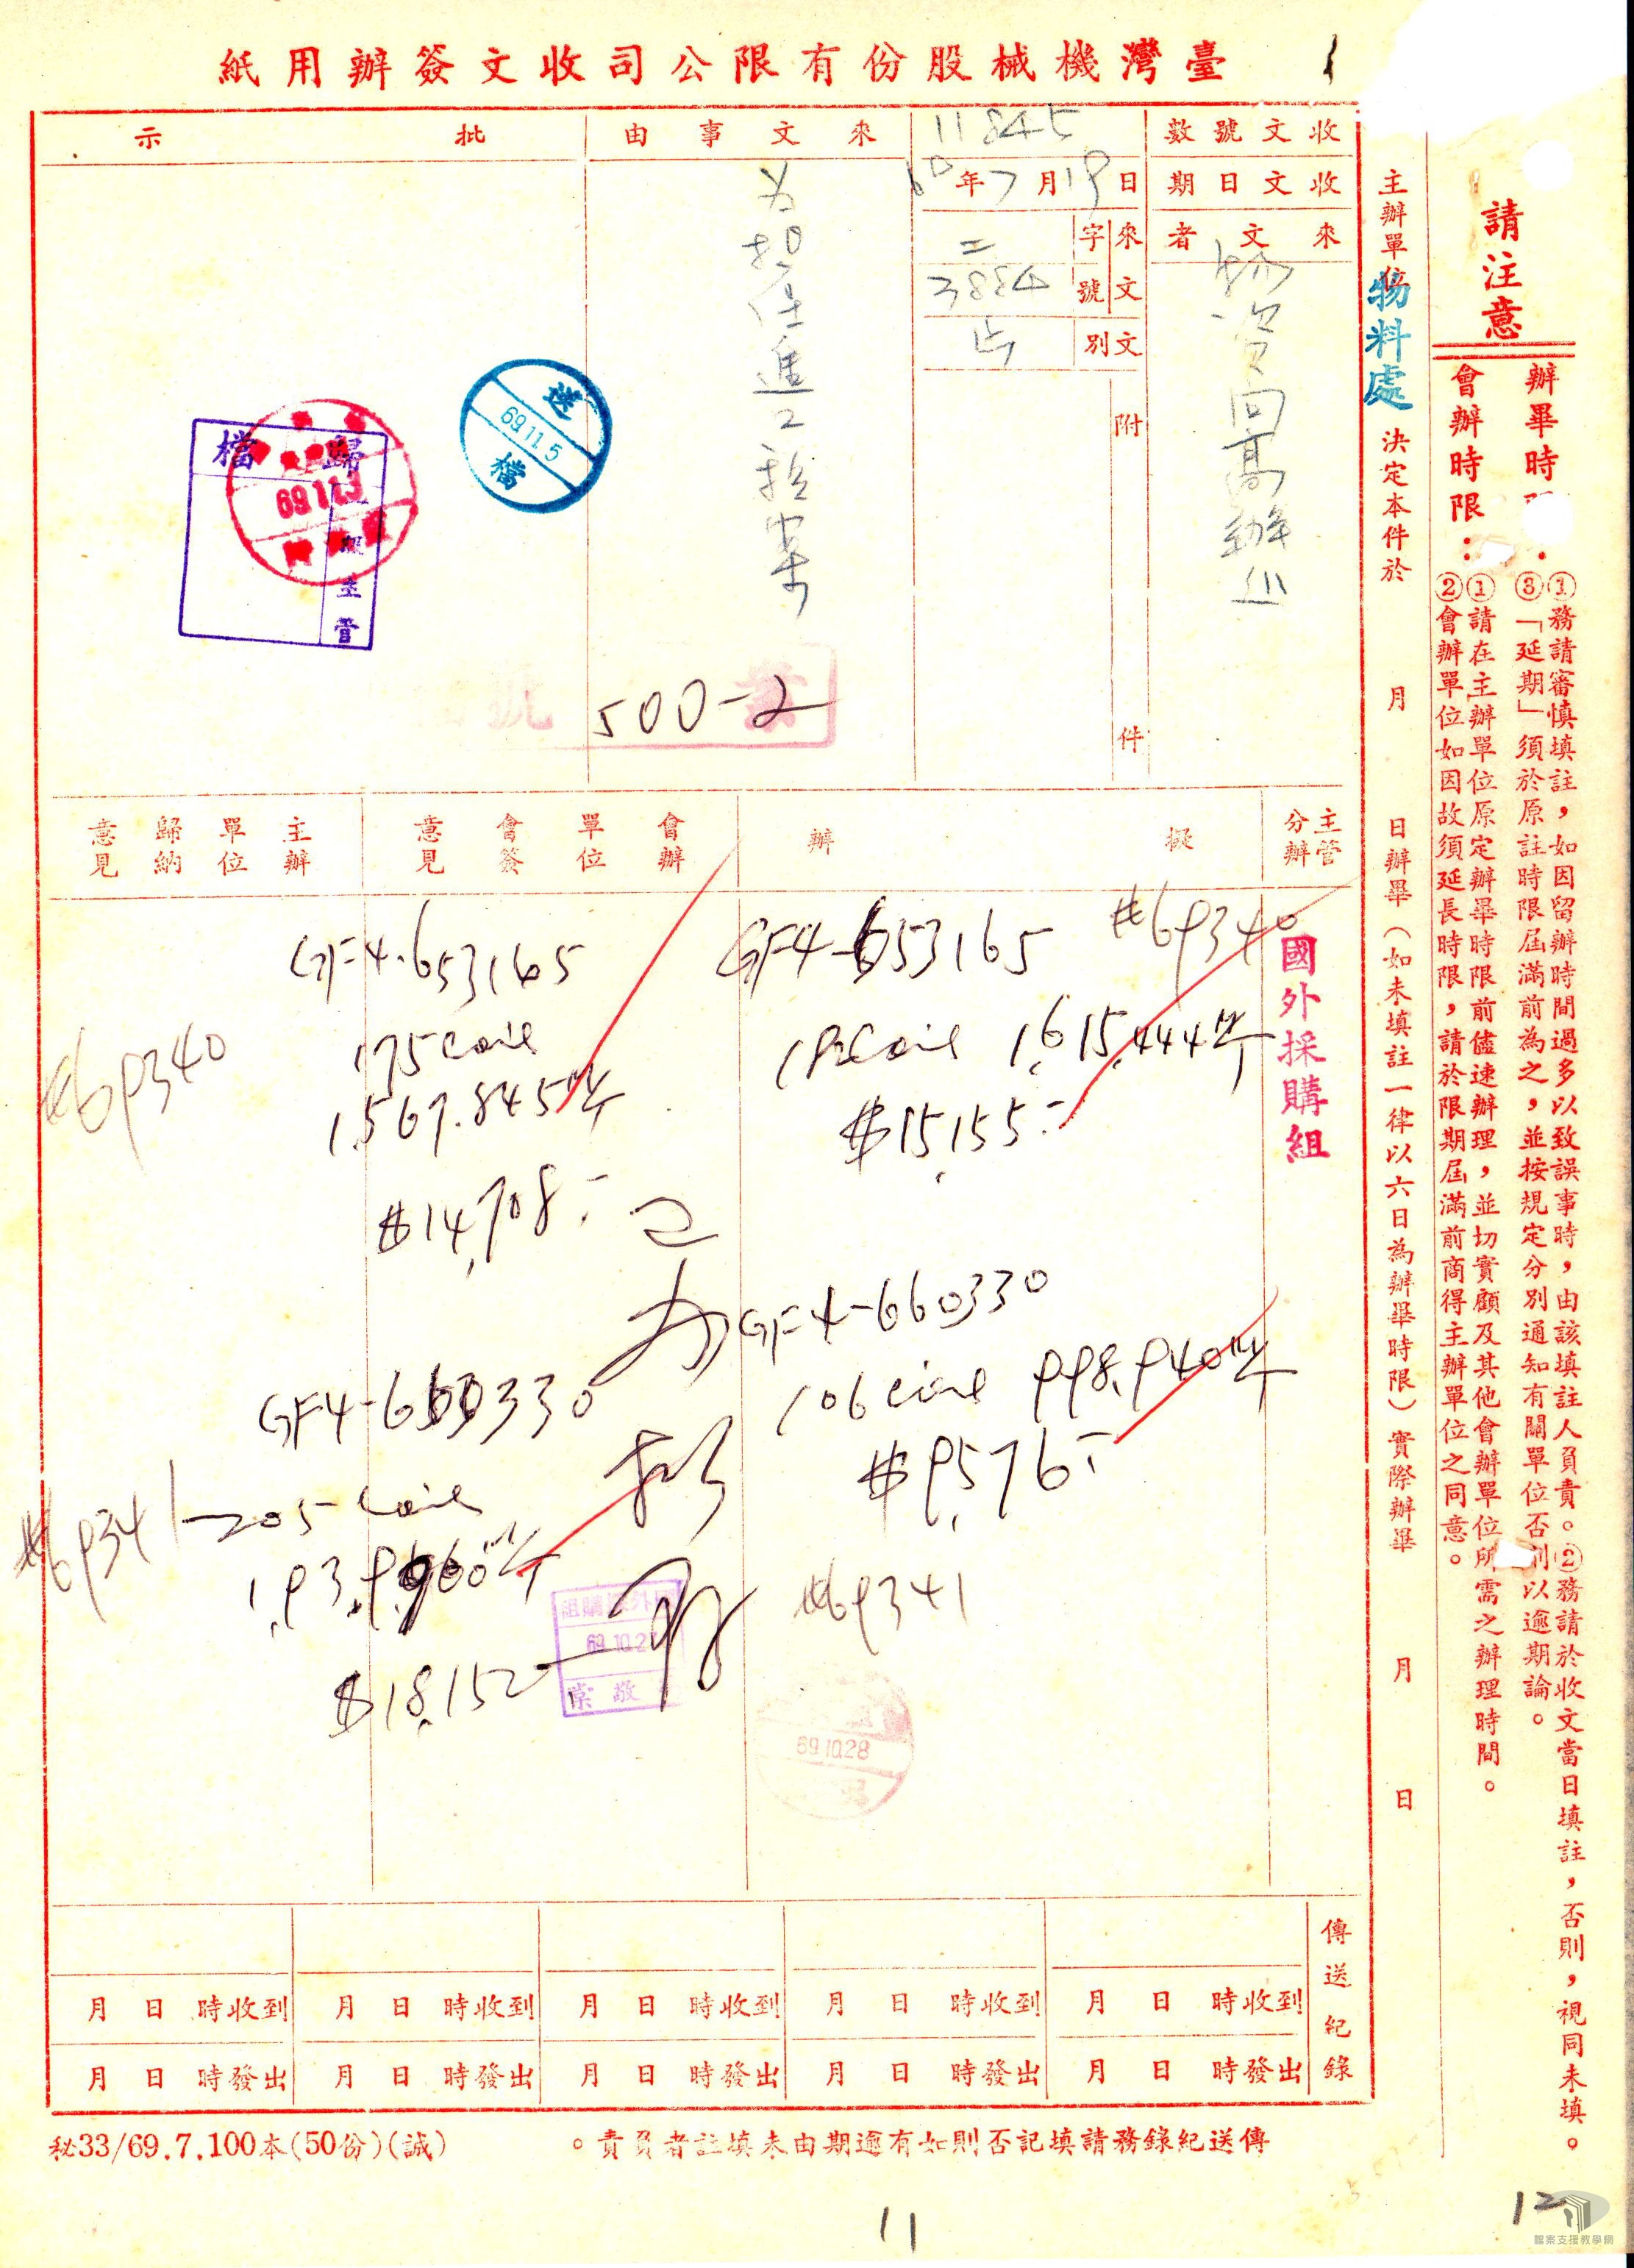 臺灣機械股份有限公司收文簽辦用紙
請注意
辦畢時
①務請審慎填註，如因留辦時間過多以致誤事時，由該填註人員責。②務請於收文當日填註，否則，視同未填。
③「延期」須於原註時限屆滿前為之，並按規定分別通知有關單位否則以逾期論。
會辦時限：
①請在主辦單位原定辦畢時限前儘速辦理，並切實顧及其他會辦單位所需之辦理時間。
②會辦單位如因故須延長時限，請於限期屆滿前商得主辦單位之同意。
主辦單位 物料處 決定本件於 月 日辦畢（如未填註一律以六日為辦畢時限）實際辦畢 月 日
收文號數
11845
收文日期
年7月19日
來文者
來文
字
二
號
3884
文別
附件
來文事由
批示
500-2
送檔
69.11.5
歸檔
69.11.3
主管
主管分辦
國外採購組
擬辦
會辦單位會簽意見
主辦單位歸納意見
#69340
GF4-653165
1,615,444
$15,155.-
GF4-660330
106 coil 998,940
$9,576.-
#69341
GF4-653165
175 coil
1,567,845
$14,708.-
#69340
GF4-660330
205 coil
#69341
$18,152
69.10.27
69.10.28
傳送紀錄
月 日 時收到
月 日 時收到
月 日 時收到
月 日 時收到
月 日 時收到
月 日 時發出
月 日 時發出
月 日 時發出
月 日 時發出
月 日 時發出
傳送紀錄務請填記否則如有逾期由未填註者負責。
秘33/69.7.100本(50份)(誠)
11
12
檔案支援教學網